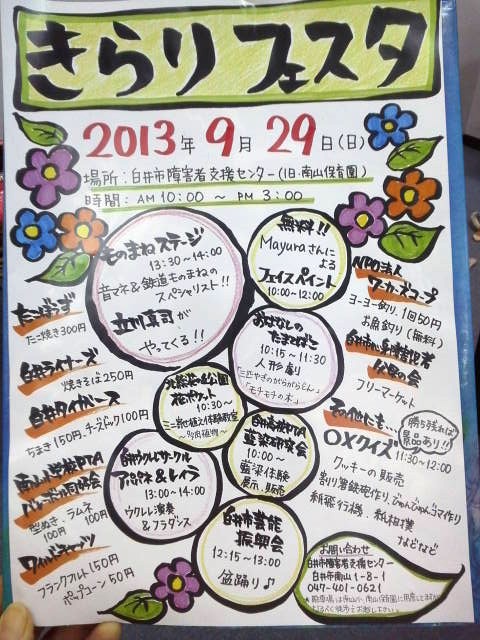 きらりフェスタ
2013年9月29日(日)
場所:白井市障害者支援センター(旧・南山保育園)
時間:AM10:00～PM3:00
ものまねステージ
13:30～14:00
音マネ&鉄道ものまねの
スペシャリスト!!
立川真司が
やってくる!!
無料!!
Mayuraさんに
よる
フェイスペイント
10:00～12:00
おはなしの
たまてばこ
10:15～11:30
人形劇
「三匹やぎのがらがらどん」
「モチモチの木」
10:30～
ミニ寄せ植え体験教室
～多肉植物～
白井高校PTA
藍染研究会
10:00～
藍染体験
展示、販売
白井ウクレレサークル
アパパネ&レイラ
13:00～14:00
ウクレレ演奏
&フラダンス
白井市芸能
振興会
12:15～13:00
盆踊り♪
たこ焼き300円
白井ライナーズ
焼きそば250円
白井タイガース
ちまき150円、チーズドック100円
南山小学校PTA
型ぬき、ラムネ
100円 100円
フランクフルト150円
ポップコーン50円
NPO法人
ワーカーズコープ
ヨーヨー釣り、1回50円
お魚釣り(無料)
白井市心身障害児者
父母の会
フリーマーケット
その他にも…
勝ち残れば
景品あり!!
○×クイズ
11:30～12:00
クッキーの販売
割り箸鉄砲作り、びゅんびゅんゴマ作り
紙飛行機、紙相撲
などなど
お問い合わせ
白井市障害者支援センター
白井市南山1-8-1
047-401-0621